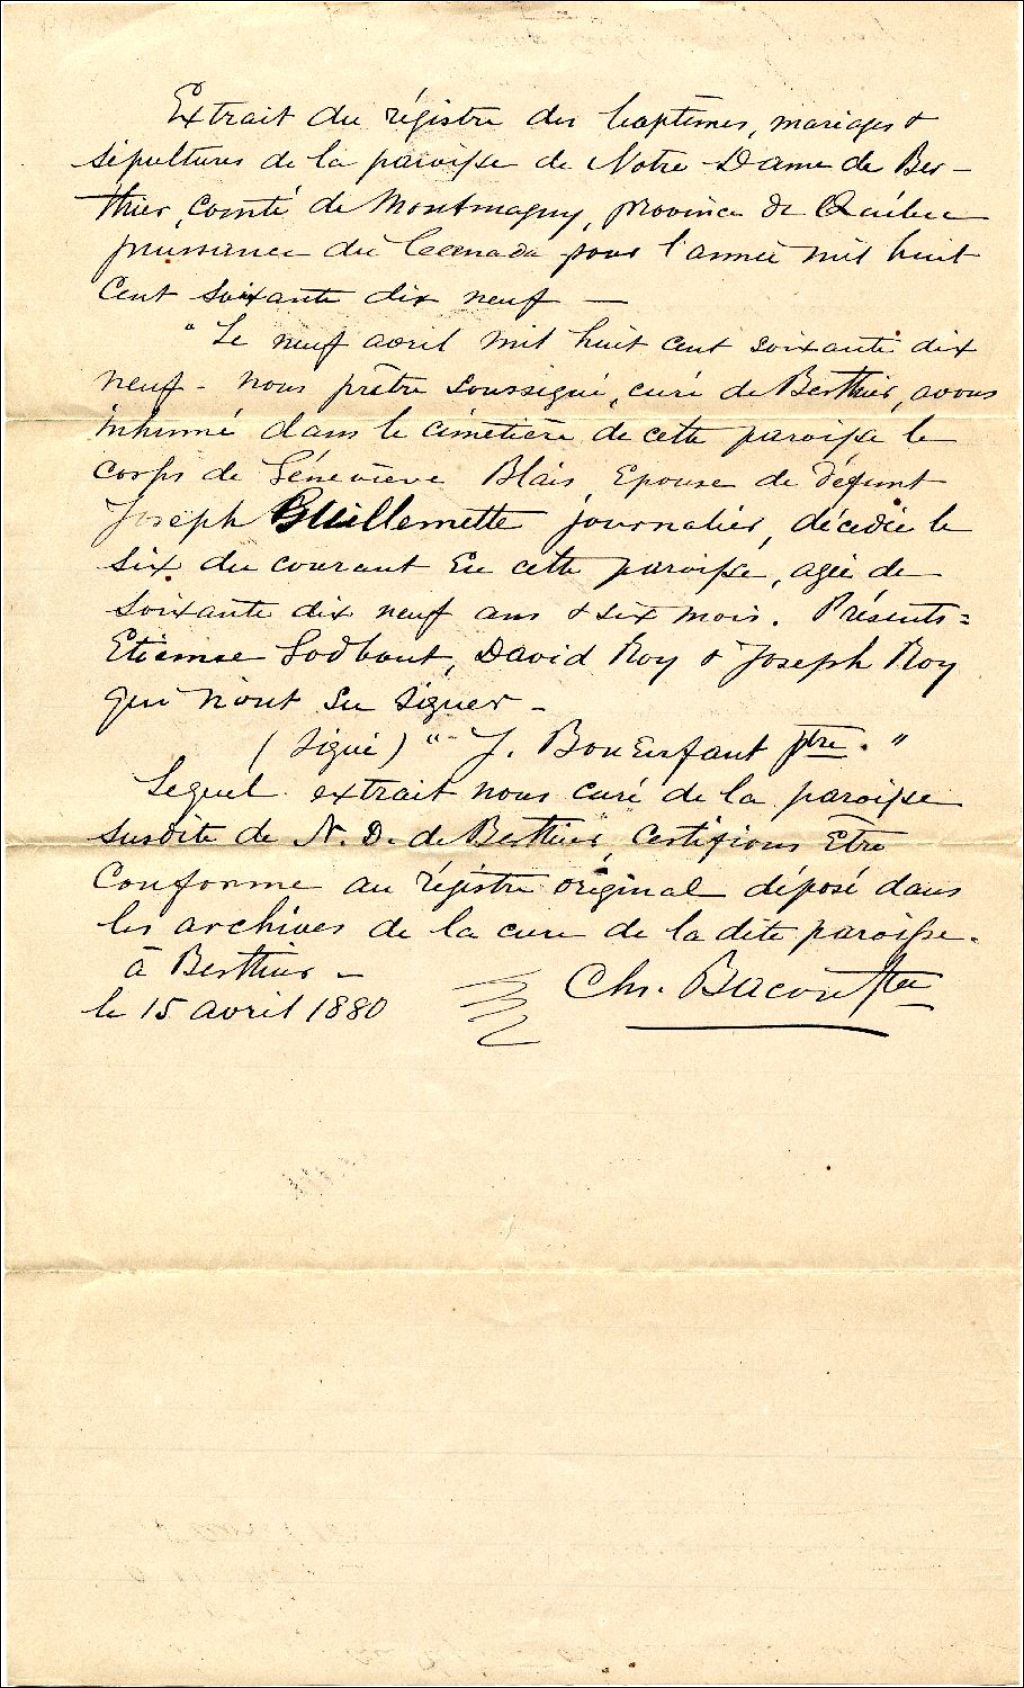 Extrait du régistre des baptêmes, mariages &
sépultures de la paroisse de Notre-Dame de Ber-
thier, Comté de Montmagny, province de Québec
puissance du Canada pour l'année mil huit
cent soixante dix neuf —
"Le neuf avril mil huit cent soixante dix
neuf - nous prêtre soussigné, curé de Berthier, avons
inhumé dans le cimetière de cette paroisse le
corps de Géneviève Blais, Epouse de défunt
Joseph Guillemette journalier, décédée le
six du courant en cette paroisse, agée de
soixante dix neuf ans & six mois. Présents =
Etienne Godbout, David Roy & Joseph Roy
qui n'ont su signer -
(Signé) "J. Bonenfant ptre."
Lequel extrait nous curé de la paroisse
susdite de N. D. de Berthier, certifions être
conforme au régistre original déposé dans
les archives de la cure de la dite paroisse.
à Berthier -
le 15 avril 1880
Chs. Bacon Ptre